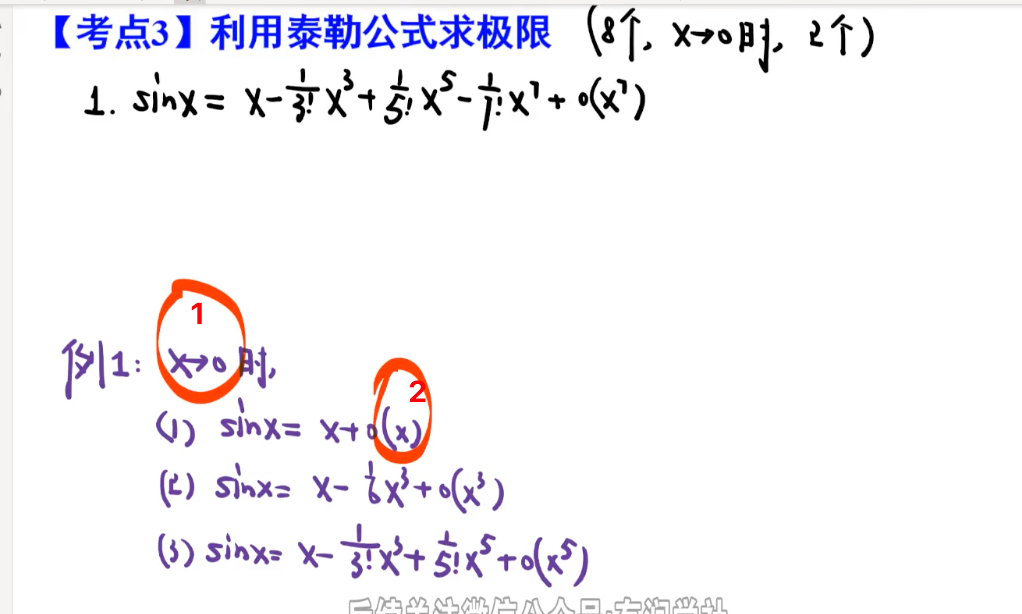 【考点3】利用泰勒公式求极限 (8个, x→0时, 2个)
1. sinx = x - 1/3! x³ + 1/5! x⁵ - 1/7! x⁷ + o(x⁷)
1
例1: x→0 时,
2
(1) sinx = x + o(x)
(2) sinx = x - 1/6 x³ + o(x³)
(3) sinx = x - 1/3! x³ + 1/5! x⁵ + o(x⁵)